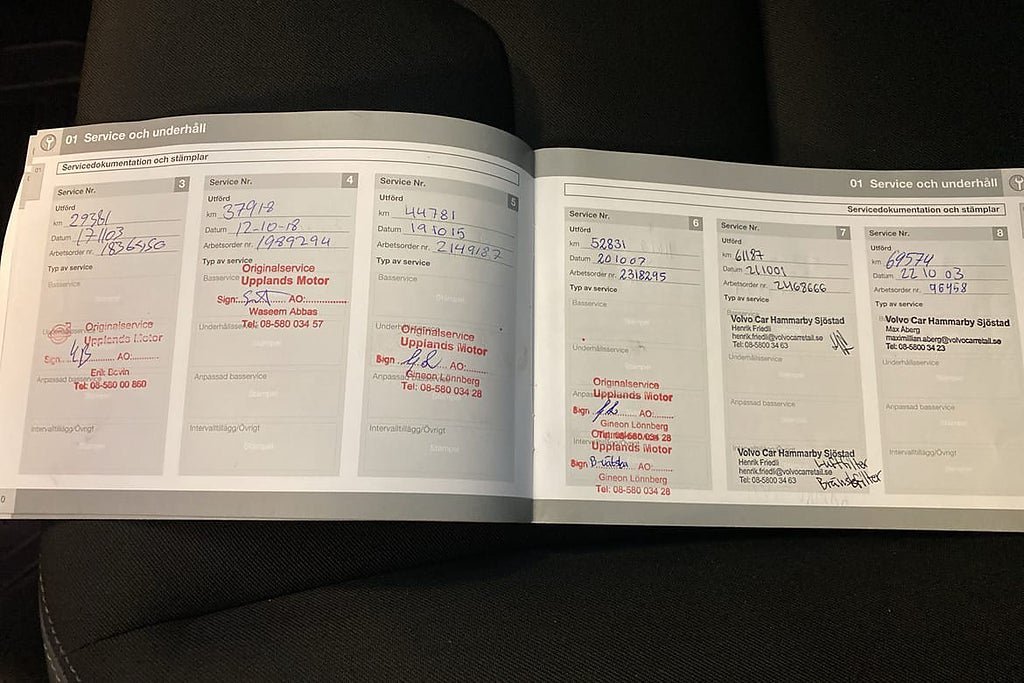 01 Service och underhåll
Servicedokumentation och stämplar
Service Nr. 3
Utförd
km 29381
Datum 171103
Arbetsorder nr. 1836450
Typ av service
Basservice
Originalservice
Upplands Motor
Sign: AO:
Erik Bovin
Tel: 08-580 00 860
Anpassad basservice
Intervalltillägg/Övrigt
Service Nr. 4
Utförd
km 37918
Datum 12-10-18
Arbetsorder nr. 1989294
Typ av service
Basservice
Originalservice
Upplands Motor
Sign: AO:
Waseem Abbas
Tel: 08-580 034 57
Underhållsservice
Anpassad basservice
Intervalltillägg/Övrigt
Service Nr. 5
Utförd
km 44781
Datum 191015
Arbetsorder nr. 2149187
Typ av service
Basservice
Originalservice
Upplands Motor
Sign AO:
Gineon Lönnberg
Tel: 08-580 034 28
Anpassad basservice
Intervalltillägg/Övrigt
01 Service och underhåll
Servicedokumentation och stämplar
Service Nr. 6
Utförd
km 52831
Datum 201007
Arbetsorder nr. 2318295
Typ av service
Basservice
Stämpel
Underhållsservice
Anpassad basservice
Originalservice
Upplands Motor
Sign AO:
Gineon Lönnberg
Tel: 08-580 034 28
Upplands Motor
Sign B-vätska AO:
Gineon Lönnberg
Tel: 08-580 034 28
Service Nr. 7
Utförd
km 61187
Datum 211001
Arbetsorder nr. 2468666
Typ av service
Volvo Car Hammarby Sjöstad
Henrik Friedli
henrik.friedli@volvocarretail.se
Tel: 08-5800 34 63
Underhållsservice
Anpassad basservice
Volvo Car Hammarby Sjöstad
Henrik Friedli
henrik.friedli@volvocarretail.se
Tel: 08-5800 34 63
Luftfilter
Bränslefilter
Service Nr. 8
Utförd
km 69574
Datum 22 10 03
Arbetsorder nr. 96458
Typ av service
Volvo Car Hammarby Sjöstad
Max Aberg
maximilian.aberg@volvocarretail.se
Tel: 08-5800 34 23
Underhållsservice
Anpassad basservice
Intervalltillägg/Övrigt